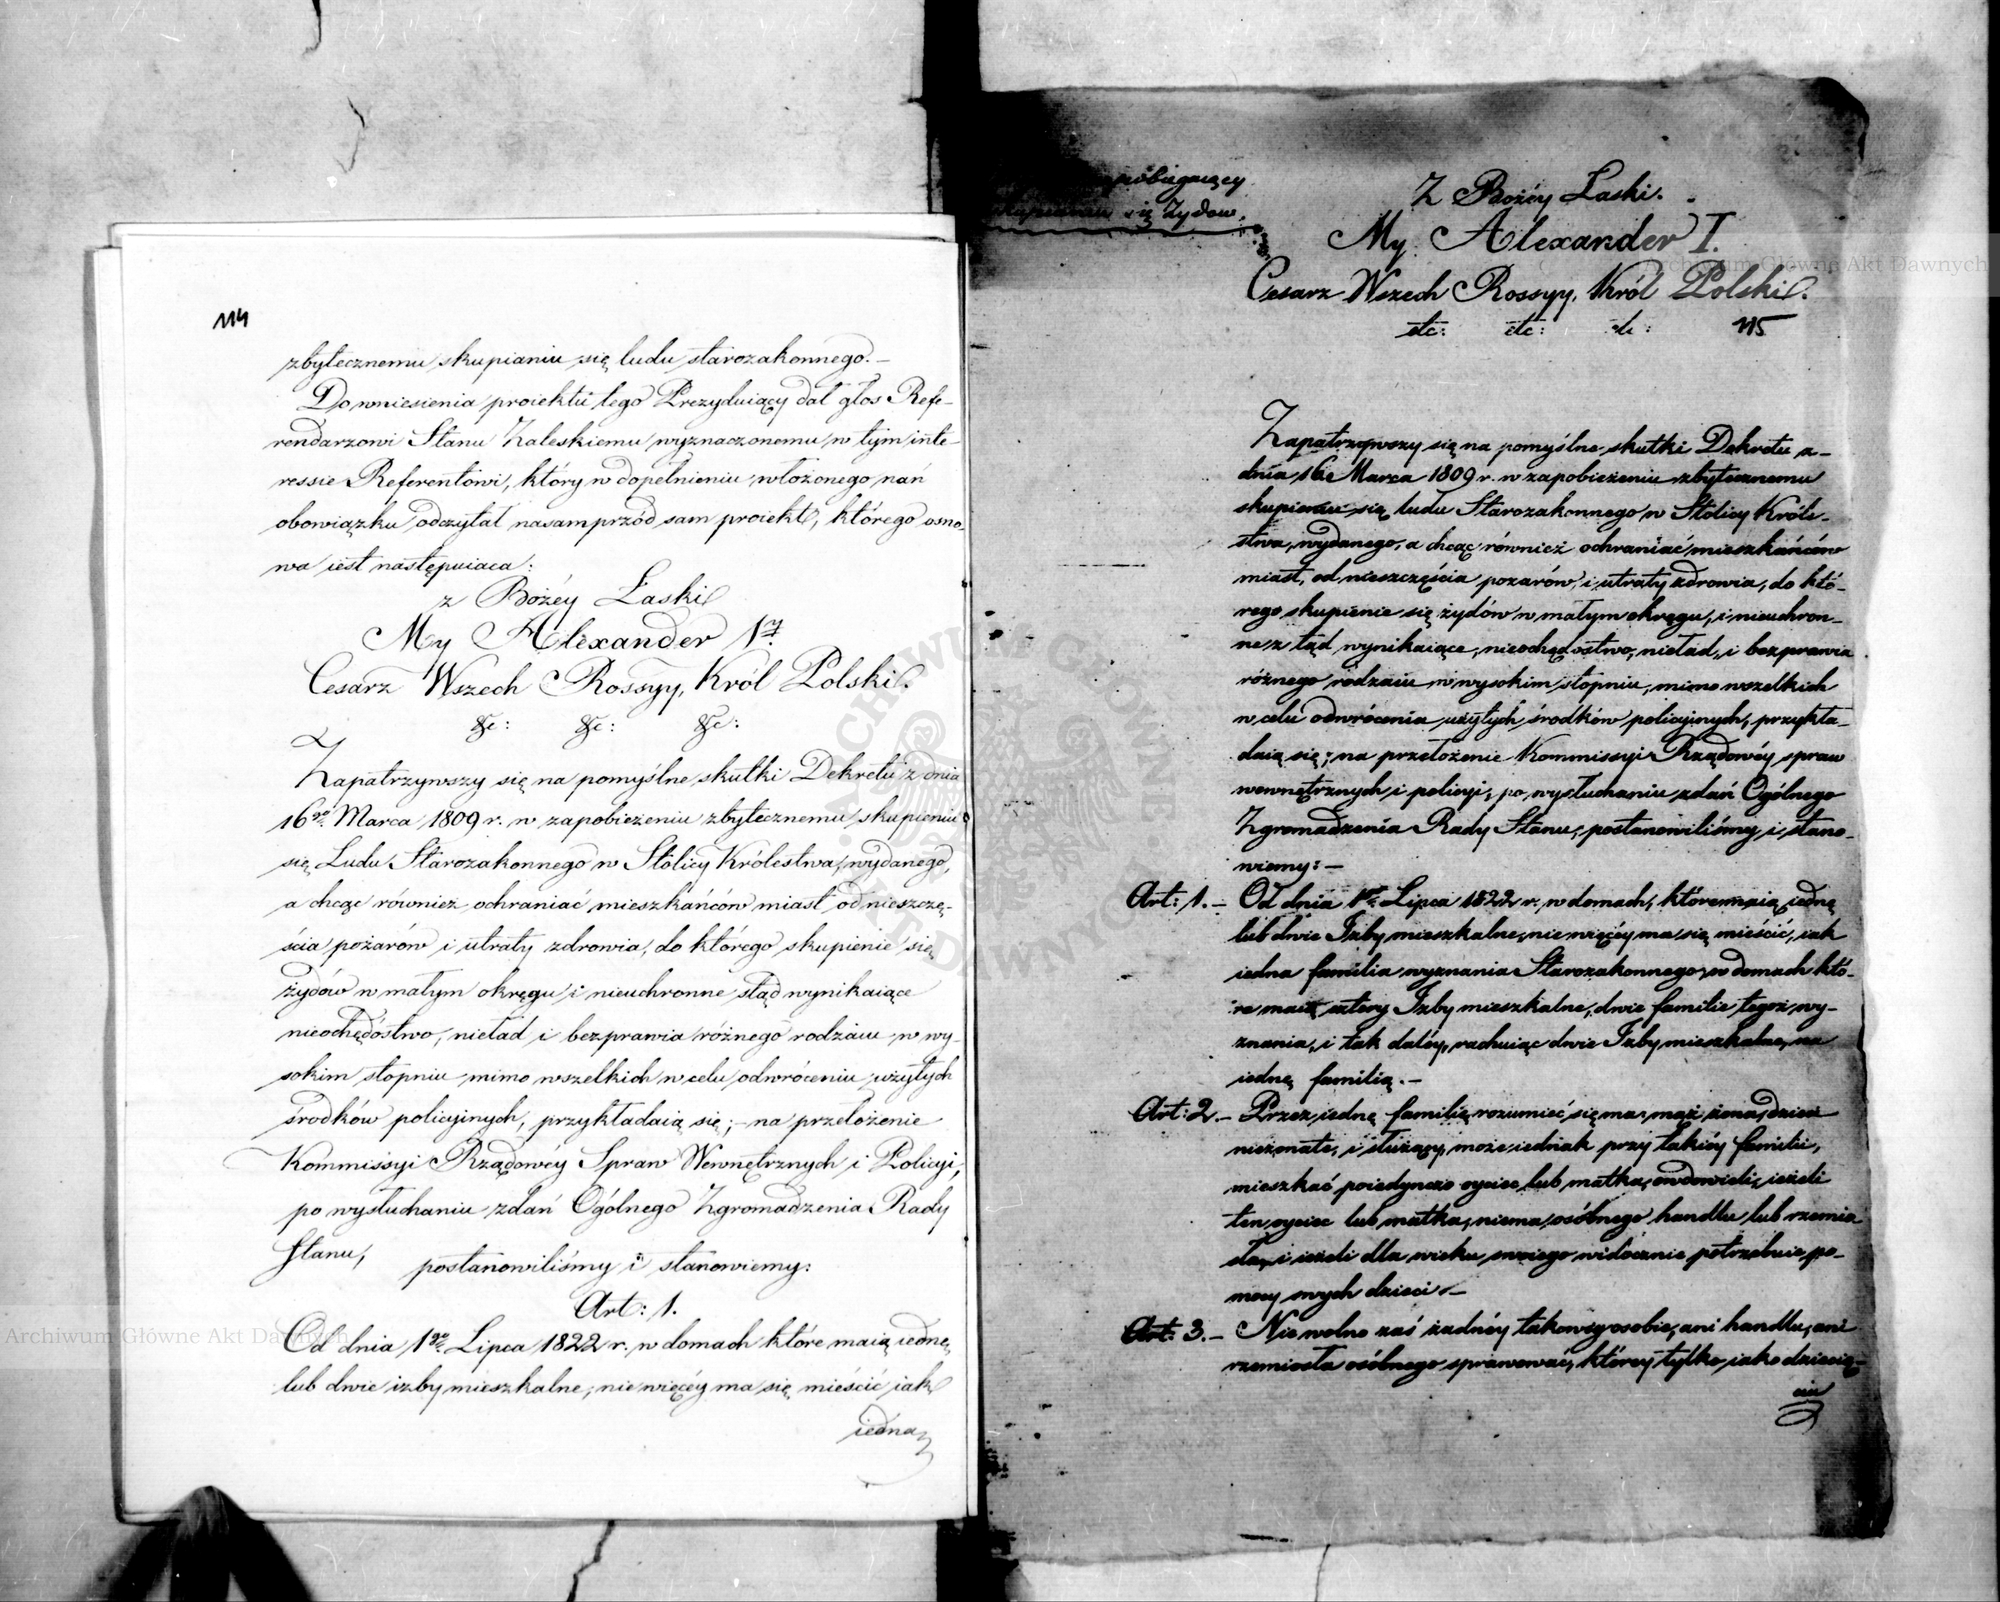 114
zbytecznemu skupianiu się ludu starozakonnego. —
Do wniesienia proiektu tego Prezyduiący dał głos Refe-
rendarzowi Stanu Zaleskiemu wyznaczonemu w tym inte-
ressie Referentowi, który w dopełnieniu włożonego nań
obowiązku odczytał nasamprzód sam proiekt, którego osno-
wa iest następuiaca:
z Bożéy Łaski
My Alexander 1y.
Cesarz Wszech Rossyy, Król Polski.
&c: &c: &c:
Zapatrzywszy się na pomyślne skutki Dekretu z dnia
16go. Marca 1809 r. w zapobieżeniu zbytecznemu skupieniu
się Ludu Starozakonnego w Stolicy Królestwa, wydanego,
a chcąc również ochraniać mieszkańców miast od nieszczę-
ścia pożarów i utraty zdrowia, do którego skupienie się
żydów w małym okręgu, i nieuchronne stąd wynikaiące
nieochędóstwo, nieład i bezprawia różnego rodzaiu w wy-
sokim stopniu mimo wszelkich w celu odwróceniu użytych
środków policyjnych, przykładaią się; — na przełożenie
Kommissyi Rządowéy Spraw Wewnętrznych i Policyi,
po wysłuchaniu zdań Ogólnego Zgromadzenia Rady
Stanu, postanowiliśmy i stanowiemy:
Art: 1.
Od dnia 1go. Lipca 1822 r. w domach które maią iednę,
lub dwie izby mieszkalne, nie więcéy ma się mieścić iak
iedna
zapobiegaiący
skupianiu się Żydów.
Z Bożéy Łaski.
My Alexander I.
Cesarz Wszech Rossyy, Król Polski.
etc: etc: etc:
115
Zapatrzywszy się na pomyślne skutki Dekretu z —
dnia 16go Marca 1809 r. w zapobieżeniu zbytecznemu
skupieniu się ludu Starozakonnego w Stolicy Króle-
stwa, wydanego, a chcąc również ochraniać mieszkańców
miast, od nieszczęścia pożarów, i utraty zdrowia, do któ-
rego skupienie się żydów w małym okręgu, i nieuchron-
ne z tąd wynikaiące, nieochędostwo, nieład, i bezprawia
różnego rodzaiu w wysokim stopniu, mimo wszelkich
w celu odwrócenia użytych środków policyjnych, przykła-
daią się; na przełożenie Kommissyi Rządowéy spraw
wewnętrznych i policyi, po wysłuchaniu zdań Ogólnego
Zgromadzenia Rady Stanu, postanowiliśmy i stano-
wiemy: —
Art: 1. — Od dnia 1go Lipca 1822 r. w domach, które maią iednę
lub dwie Izby mieszkalne, nie więcéy ma się mieścić, iak
iedna familia wyznania Starozakonnego, w domach któ-
re maią cztery Izby mieszkalne, dwie familie tegoż wy-
znania, i tak daléy, rachuiąc dwie Izby mieszkalne, na
iednę familią. —
Art: 2. — Przez iednę familię rozumieć się ma, mąż żona, dzieci
nieżonate, i służący, może iednak przy takiéy familii,
mieszkać poiedynczo oyciec lub matka, owdowieli, ieżeli
ten oyciec lub matka, niema osóbnego handlu lub rzemio-
sła, i ieżeli dla wieku swoiego widocznie potrzebuie po-
mocy swych dzieci. —
Art: 3. — Nie wolno zaś żadnéy takowéy osobie, ani handlu, ani
rzemiosła osóbnego sprawować, któréy tylko iako dziecię-
ciu
Archiwum Główne Akt Dawnych
Archiwum Główne Akt Dawnych